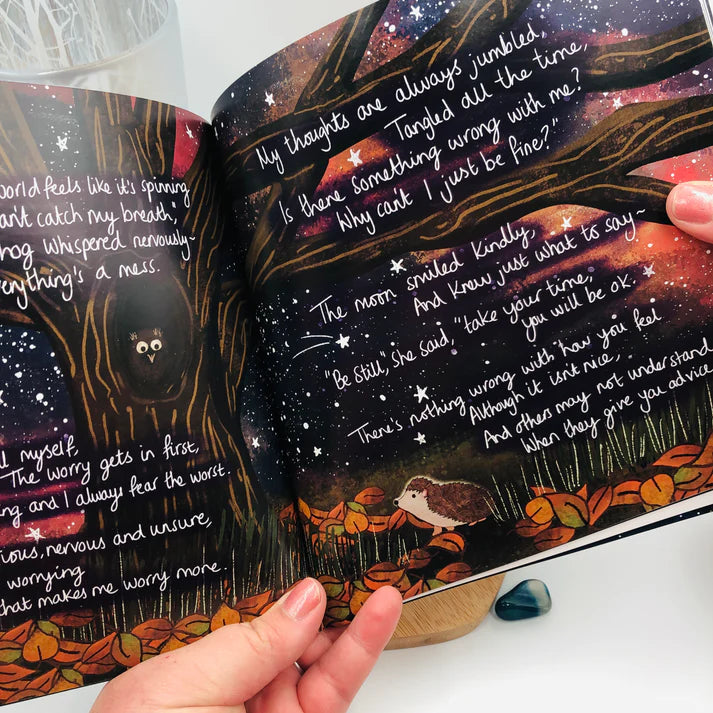 world feels like it's spinning
can't catch my breath,"
hog whispered nervously~
everything's a mess.
myself,
The worry gets in first,
and I always fear the worst.
nervous and unsure,
worrying
that makes me worry more.
My thoughts are always jumbled,
Tangled all the time,
Is there something wrong with me?
Why can't I just be fine?"
The moon smiled kindly,
And knew just what to say~
"Be still," she said, "take your time,
you will be ok.
There's nothing wrong with how you feel
Although it isn't nice,
And others may not understand
When they give you advice